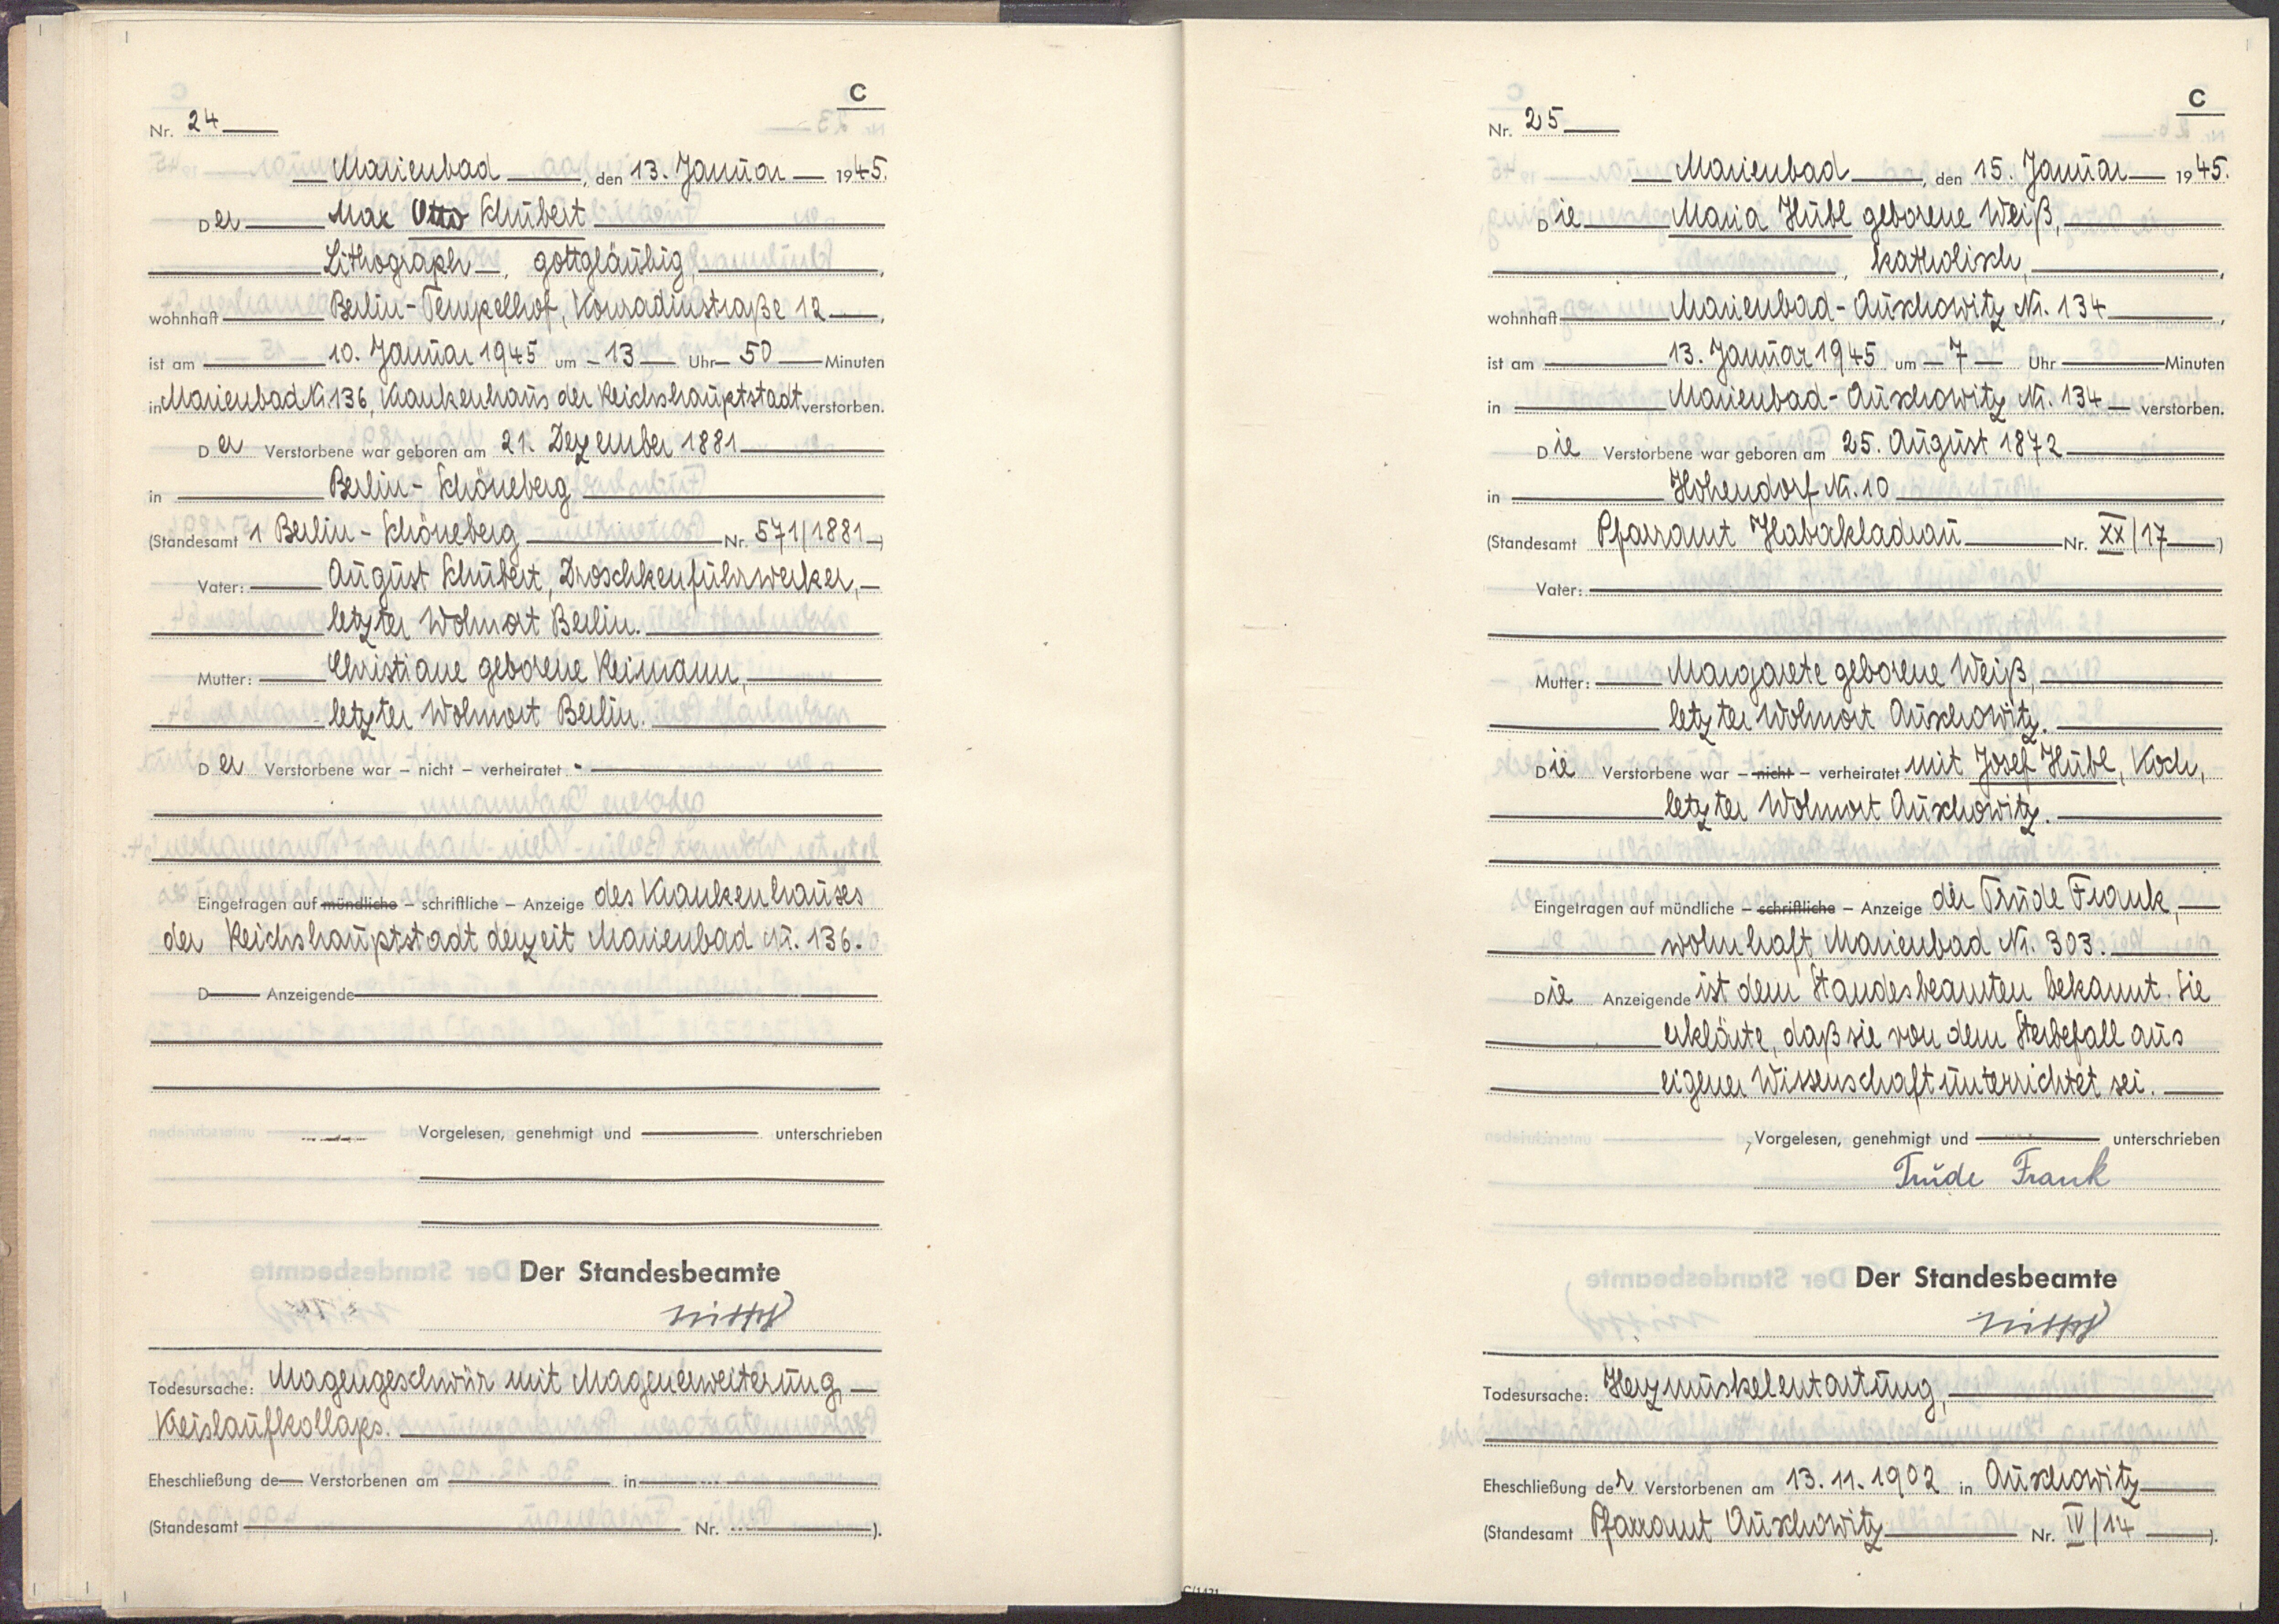 C
Nr. 24
Marienbad, den 13. Januar 1945.
Der Max Otto Schubert
Lithograph, gottgläubig,
wohnhaft Berlin-Tempelhof, Konradinstraße 12,
ist am 10. Januar 1945 um 13 Uhr 50 Minuten
in Marienbad Nr. 136, Krankenhaus der Reichshauptstadt verstorben.
Der Verstorbene war geboren am 21. Dezember 1881
in Berlin-Schöneberg
(Standesamt 1 Berlin-Schöneberg Nr. 571/1881)
Vater: August Schubert, Droschkenfuhrwerker,
letzter Wohnort Berlin.
Mutter: Christiane geborene Reimann,
letzter Wohnort Berlin.
Der Verstorbene war – nicht – verheiratet
Eingetragen auf mündliche – schriftliche – Anzeige des Krankenhauses
der Reichshauptstadt derzeit Marienbad Nr. 136.
D Anzeigende
Vorgelesen, genehmigt und unterschrieben
Der Standesbeamte
Todesursache: Magengeschwür mit Magenerweiterung,
Kreislaufkollaps.
Eheschließung de Verstorbenen am in
(Standesamt Nr. ).
C
Nr. 25
Marienbad, den 15. Januar 1945.
Die Maria Hübl geborene Weiß,
, katholisch,
wohnhaft Marienbad-Auschowitz Nr. 134,
ist am 13. Januar 1945 um 7 Uhr Minuten
in Marienbad-Auschowitz Nr. 134 verstorben.
Die Verstorbene war geboren am 25. August 1872
in Hohendorf Nr. 10
(Standesamt Pfarramt Habakladrau Nr. XX/17)
Vater:
Mutter: Margarete geborene Weiß,
letzter Wohnort Auschowitz.
Die Verstorbene war – nicht – verheiratet mit Josef Hübl, Koch,
letzter Wohnort Auschowitz.
Eingetragen auf mündliche – schriftliche – Anzeige der Trude Frank,
wohnhaft Marienbad Nr. 303.
Die Anzeigende ist dem Standesbeamten bekannt. Sie
erklärte, daß sie von dem Sterbefall aus
eigener Wissenschaft unterrichtet sei.
Vorgelesen, genehmigt und unterschrieben
Trude Frank
Der Standesbeamte
Todesursache: Herzmuskelentartung,
Eheschließung der Verstorbenen am 13.11.1902 in Auschowitz
(Standesamt Pfarramt Auschowitz Nr. IV/14).